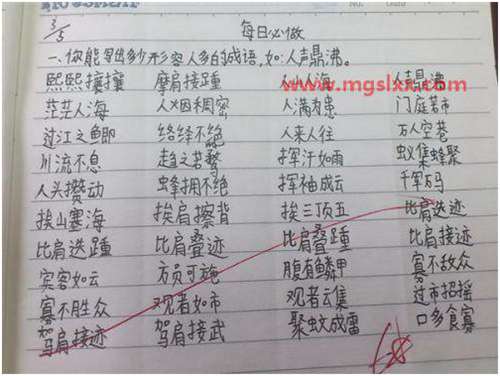 3/5
每日必做
一、你能写出多少形容人多的成语,如:人声鼎沸。
www.mgslxx.com
熙熙攘攘 摩肩接踵 人山人海 人声鼎沸
茫茫人海 人口稠密 人满为患 门庭若市
过江之鲫 络绎不绝 人来人往 万人空巷
川流不息 趋之若鹜 挥汗如雨 蚁集蜂聚
人头攒动 蜂拥不绝 挥袖成云 千军万马
挨山塞海 挨肩擦背 挨三顶五 比肩迭迹
比肩迭踵 比肩叠迹 比肩叠踵 比肩接迹
宾客如云 方员可施 腹有鳞甲 寡不敌众
寡不胜众 观者如市 观者云集 过市招摇
驾肩接迹 驾肩接武 聚蚊成雷 口多食寡